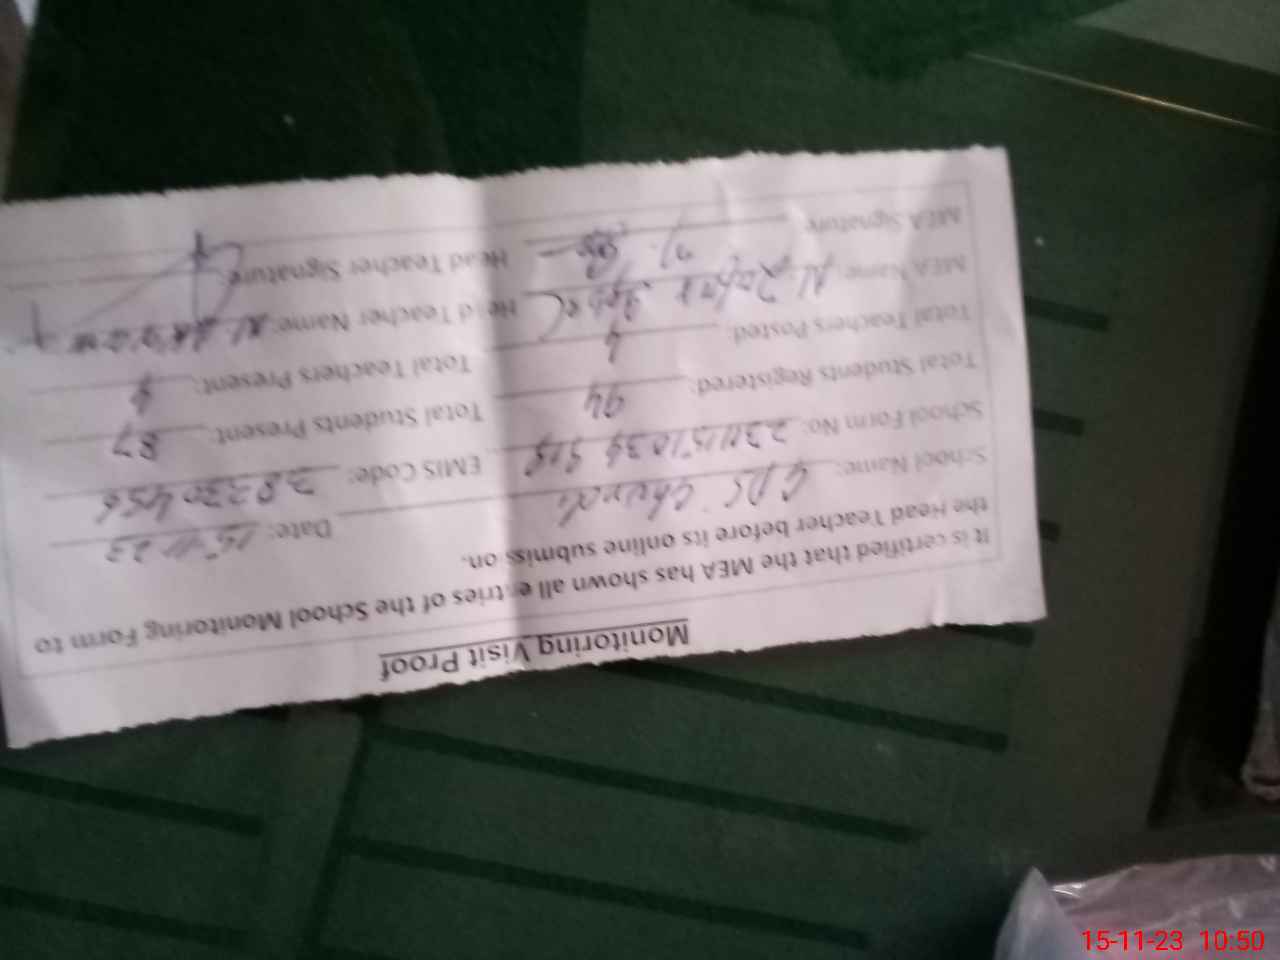 Monitoring Visit Proof
It is certified that the MEA has shown all entries of the School Monitoring Form to
the Head Teacher before its online submission.
Date: 15-11-23
School Name: GPS
School Form No: EMIS Code:
Total Students Registered: 94 Total Students Present: 87
Total Teachers Posted: 4 Total Teachers Present: 4
MEA Name: Head Teacher Name:
MEA Signature Head Teacher Signature
15-11-23 10:50